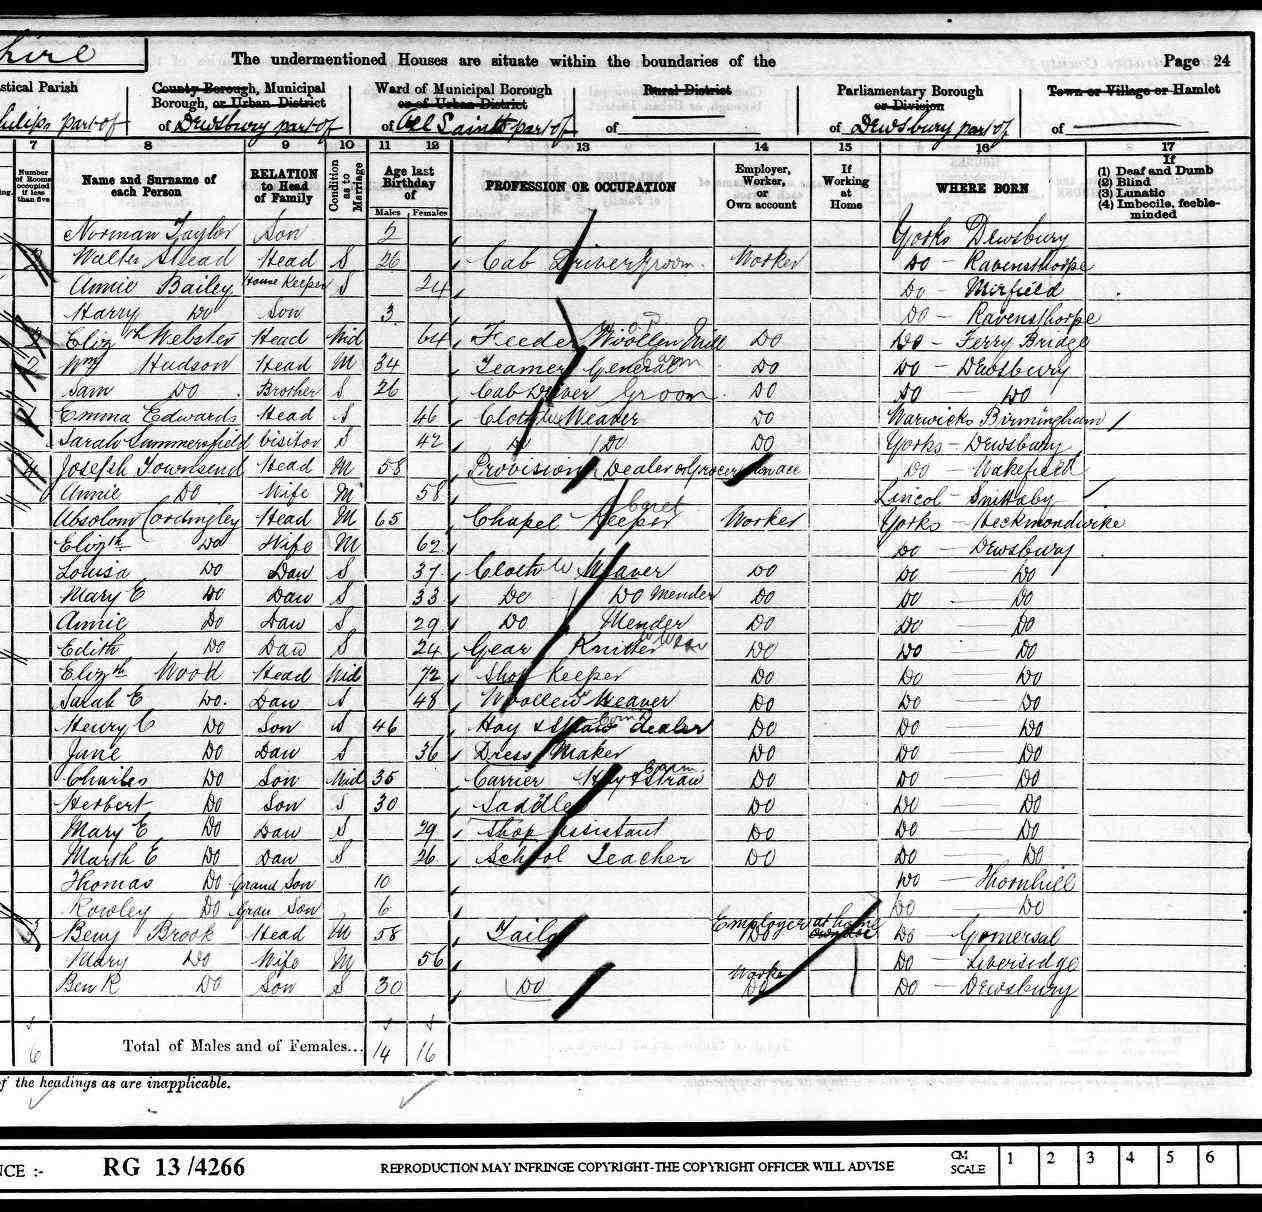 hire
The undermentioned Houses are situate within the boundaries of the
Page 24
stical Parish
hilips part of
County Borough, Municipal
Borough, or Urban District
of Dewsbury part of
Ward of Municipal Borough
or of Urban District
of All Saints part of
Rural District
of
Parliamentary Borough
or Division
of Dewsbury part of
Town or Village or Hamlet
of
7 8 9 10 11 12 13 14 15 16 17
Number of Rooms occupied if less than five
Name and Surname of each Person
RELATION to Head of Family
Condition as to Marriage
Age last Birthday of
Males Females
PROFESSION OR OCCUPATION
Employer, Worker, or Own account
If Working at Home
WHERE BORN
If
(1) Deaf and Dumb
(2) Blind
(3) Lunatic
(4) Imbecile, feeble-minded
Norman Taylor Son 2 Yorks Dewsbury
Walter Stead Head S 26 Cab Driver Groom Worker Do Ravensthorpe
Annie Bailey House Keeper S 24 Do Mirfield
Harry Do Son 3 Do Ravensthorpe
Elizth Webster Head Wid 64 Feeder Woollen Mill Do Do Ferry Bridge
Wm Hudson Head M 34 Teamer General Do Do Dewsbury
Sam Do Brother S 26 Cab Driver Groom Do Do Do
Emma Edwards Head S 46 Cloth W Weaver Do Warwicks Birmingham
Sarah Summersfield Visitor S 42 Do Do Do Yorks Dewsbury
Joseph Townsend Head M 58 Provision Dealer or Grocer Own acc Do Wakefield
Annie Do Wife M 58 Lincol
Absolom Cordingley Head M 65 Chapel Keeper Worker Yorks Heckmondwike
Elizth Do Wife M 62 Do Dewsbury
Louisa Do Daw S 37 Cloth W Weaver Do Do Do
Mary E Do Daw S 33 Do Do Mender Do Do Do
Annie Do Daw S 29 Do Mender Do Do Do
Edith Do Daw S 24 Gear Knitter Do Do Do
Elizth Wood Head Wid 72 Shop Keeper Do Do Do
Sarah E Do. Daw S 48 Woollen W Weaver Do Do Do
Henry C Do Son S 46 Hay & Straw dealer Do Do Do
Jane Do Daw S 36 Dress Maker Do Do Do
Charles Do Son Wid 35 Carrier Hay & Straw Do Do Do
Herbert Do Son S 30 Saddler Do Do Do
Mary E Do Daw S 29 Shop Assistant Do Do Do
Marth E Do Daw S 26 School Teacher Do Do Do
Thomas Do Grand Son 10 Do Thornhill
Rowley Do Gran Son 6 Do Do
Benj Brook Head M 58 Tailor Employer at home Do Gomersal
Mary Do Wife M 56 Do Liversidge
Ben R Do Son S 30 Do Worker Do Do Dewsbury
6 Total of Males and of Females... 14 16
f the headings as are inapplicable.
NCE :- RG 13 /4266
REPRODUCTION MAY INFRINGE COPYRIGHT-THE COPYRIGHT OFFICER WILL ADVISE
CM SCALE 1 2 3 4 5 6